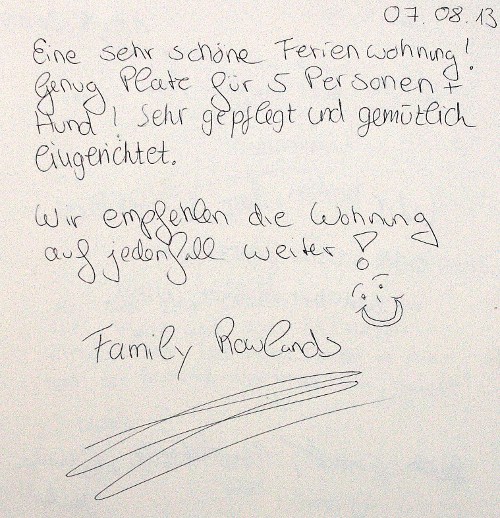 07.08.13
Eine sehr schöne Ferienwohnung!
Genug Platz für 5 Personen +
Hund! Sehr gepflegt und gemütlich
eingerichtet.
Wir empfehlen die Wohnung
auf jedenfall weiter!
Family Rowlands